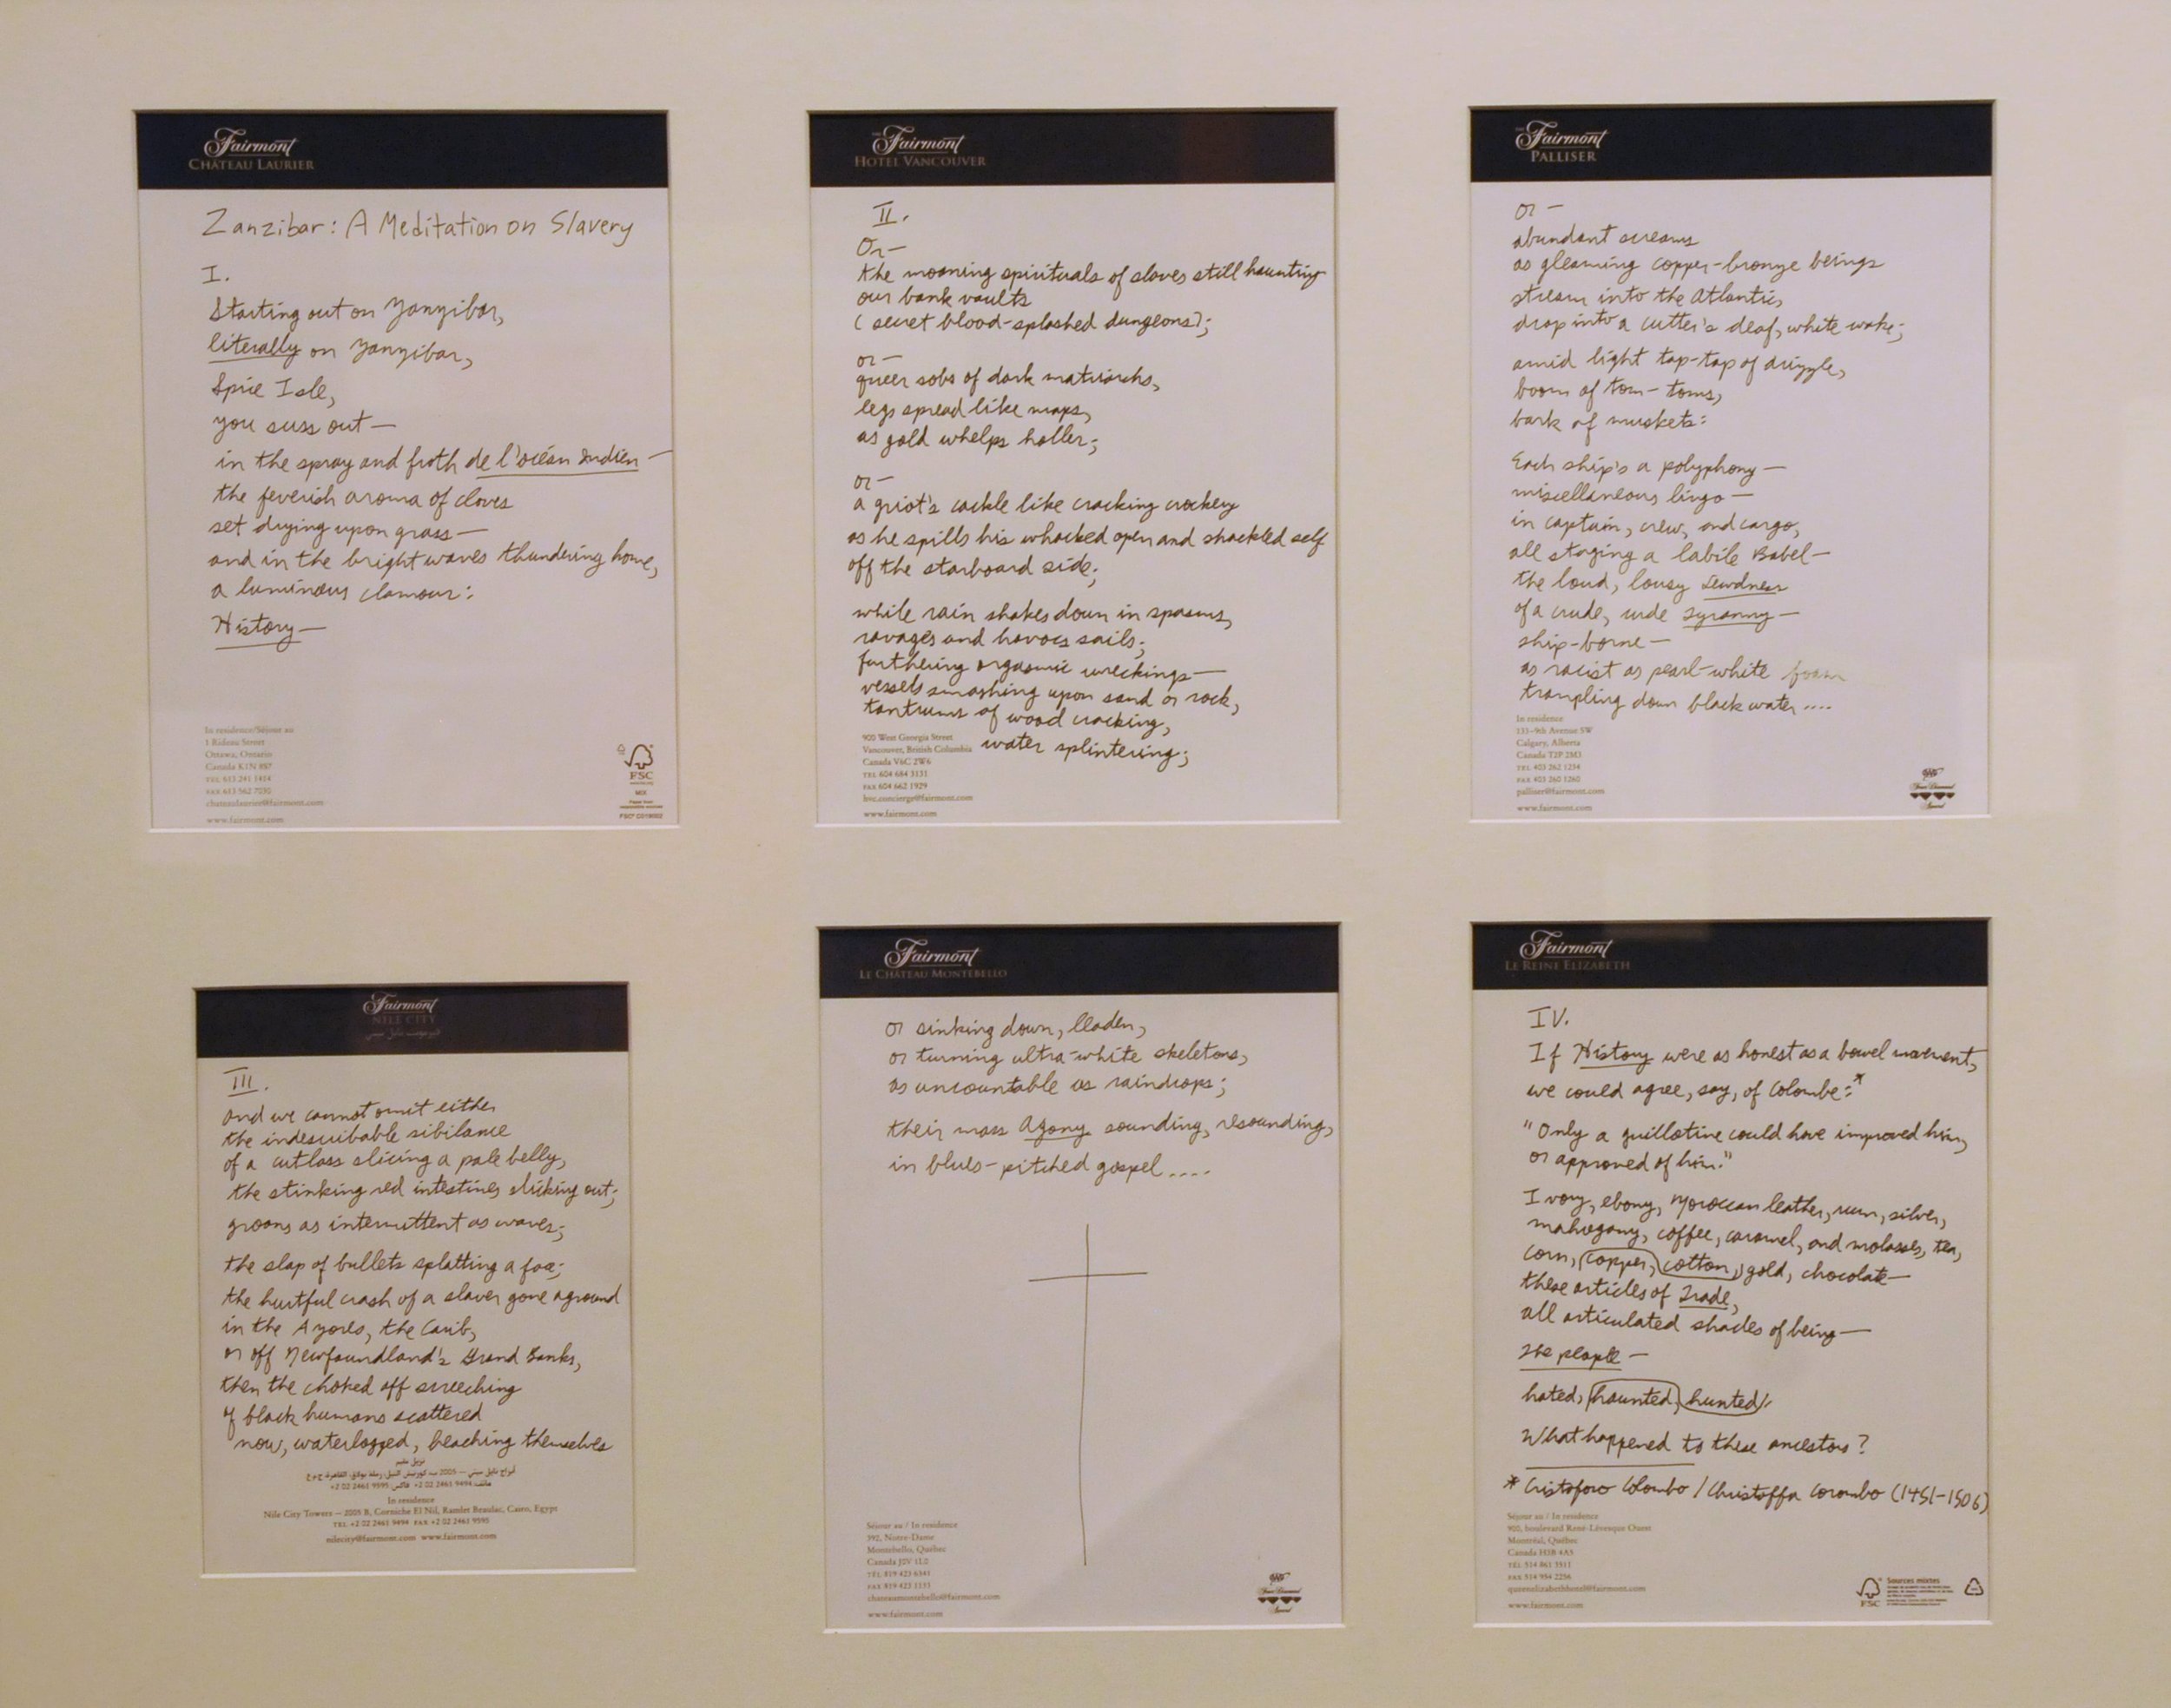 Fairmont
CHÂTEAU LAURIER
Zanzibar: A Meditation on Slavery
I.
Starting out on Zanzibar,
literally on Zanzibar,
Spice Isle,
you suss out—
in the spray and froth de l'océan Indien—
the feverish aroma of cloves
set drying upon grass—
and in the bright waves thundering home,
a luminous clamour:
History—
In residence/Séjour au
1 Rideau Street
Ottawa, Ontario
Canada K1N 8S7
TEL 613 241 1414
FAX 613 562 7030
chateaulaurier@fairmont.com
www.fairmont.com
FSC
MIX
Paper from
responsible sources
THE Fairmont
HOTEL VANCOUVER
II.
Or—
the moaning spirituals of slaves still haunting
our bank vaults
(secret blood-splashed dungeons);
or—
queer sobs of dark matriarchs,
legs spread like maps,
as gold whelps holler;
or—
a griot's cackle like cracking crockery
as he spills his whacked open and shackled self
off the starboard side;
while rain shakes down in spasms,
ravages and havocs sails;
furthering orgasmic wreckings—
vessels smashing upon sand or rock,
tantrums of wood cracking,
water splintering;
900 West Georgia Street
Vancouver, British Columbia
Canada V6C 2W6
TEL 604 684 3131
FAX 604 662 1929
hvc.concierge@fairmont.com
www.fairmont.com
THE Fairmont
PALLISER
or—
abundant screams
as gleaming copper-bronze beings
stream into the Atlantic,
drop into a cutter's deaf, white wake;
amid light tap-tap of drizzle,
boom of tom-toms,
bark of muskets:
Each ship's a polyphony—
miscellaneous lingo—
in captain, crew, and cargo,
all staging a labile Babel—
the loud, lousy Lewdness
of a crude, rude Tyranny—
ship-borne—
as racist as pearl-white foam
trampling down black water....
In residence
133–9th Avenue SW
Calgary, Alberta
Canada T2P 2M3
TEL 403 262 1234
FAX 403 260 1260
palliser@fairmont.com
www.fairmont.com
Four Diamond
Award
Fairmont
NILE CITY
فيرمونت نايل سيتي
III.
And we cannot omit either
the indescribable sibilance
of a cutlass slicing a pale belly,
the stinking red intestines slicking out;
groans as intermittent as waves;
the slap of bullets splatting a face;
the hurtful crash of a slaver gone aground
in the Azores, the Carib,
or off Newfoundland's Grand Banks,
then the choked off screeching
of black humans scattered
now, waterlogged, beaching themselves
نزيل مقيم
أبراج نايل سيتي — 2005 ب، كورنيش النيل، رملة بولاق، القاهرة، ج.م.ع
هاتف: 9494 2461 02 2+ فاكس: 9595 2461 02 2+
In residence
Nile City Towers — 2005 B, Corniche El Nil, Ramlet Beaulac, Cairo, Egypt
TEL +2 02 2461 9494 FAX +2 02 2461 9595
nilecity@fairmont.com www.fairmont.com
Fairmont
LE CHÂTEAU MONTEBELLO
or sinking down, leaden,
or turning ultra-white skeletons,
as uncountable as raindrops;
their mass Agony sounding, resounding,
in blues-pitched gospel....
Séjour au / In residence
392, Notre-Dame
Montebello, Québec
Canada J0V 1L0
TÉL 819 423 6341
FAX 819 423 1133
chateaumontebello@fairmont.com
www.fairmont.com
Four Diamond
Award
Fairmont
LE REINE ELIZABETH
IV.
If History were as honest as a bowel movement,
we could agree, say, of Colombe:*
"Only a guillotine could have improved him,
or approved of him."
Ivory, ebony, Moroccan leather, rum, silver,
mahogany, coffee, caramel, and molasses, tea,
corn, copper, cotton, gold, chocolate—
these articles of Trade,
all articulated shades of being—
The people—
hated, haunted, hunted.
What happened to these ancestors?
* Cristoforo Colombo / Christoffa Corombo (1451-1506)
Séjour au / In residence
900, boulevard René-Lévesque Ouest
Montréal, Québec
Canada H3B 4A5
TÉL 514 861 3511
FAX 514 954 2256
queenelizabethhotel@fairmont.com
www.fairmont.com
FSC
Sources mixtes